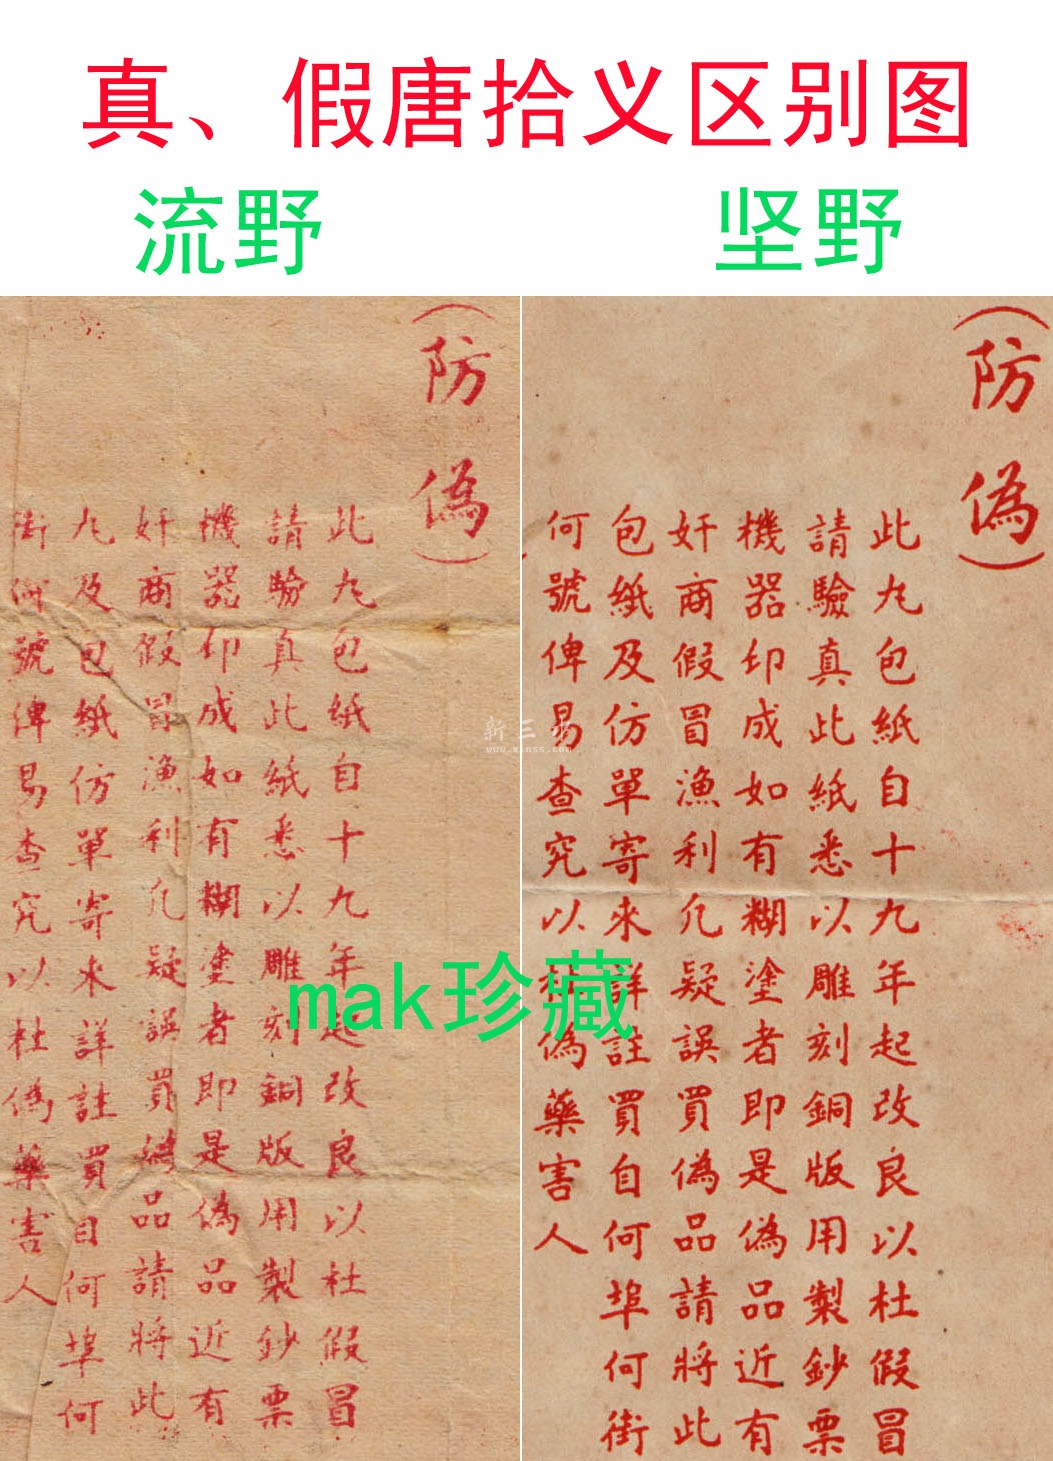 真、假唐拾义区别图
流野
坚野
(防偽)
此丸包紙自十九年起改良以杜假冒
請驗真此紙悉以雕刻銅版用製鈔票
機器印成如有糊塗者即是偽品近有
奸商假冒漁利凡疑誤買偽品請將此
丸及包紙仿單寄來詳註買自何埠何
街何號俾易查究以杜偽藥害人
(防偽)
此丸包紙自十九年起改良以杜假冒
請驗真此紙悉以雕刻銅版用製鈔票
機器印成如有糊塗者即是偽品近有
奸商假冒漁利凡疑誤買偽品請將此
包紙及仿單寄來詳註買自何埠何街
何號俾易查究以杜偽藥害人
mak珍藏